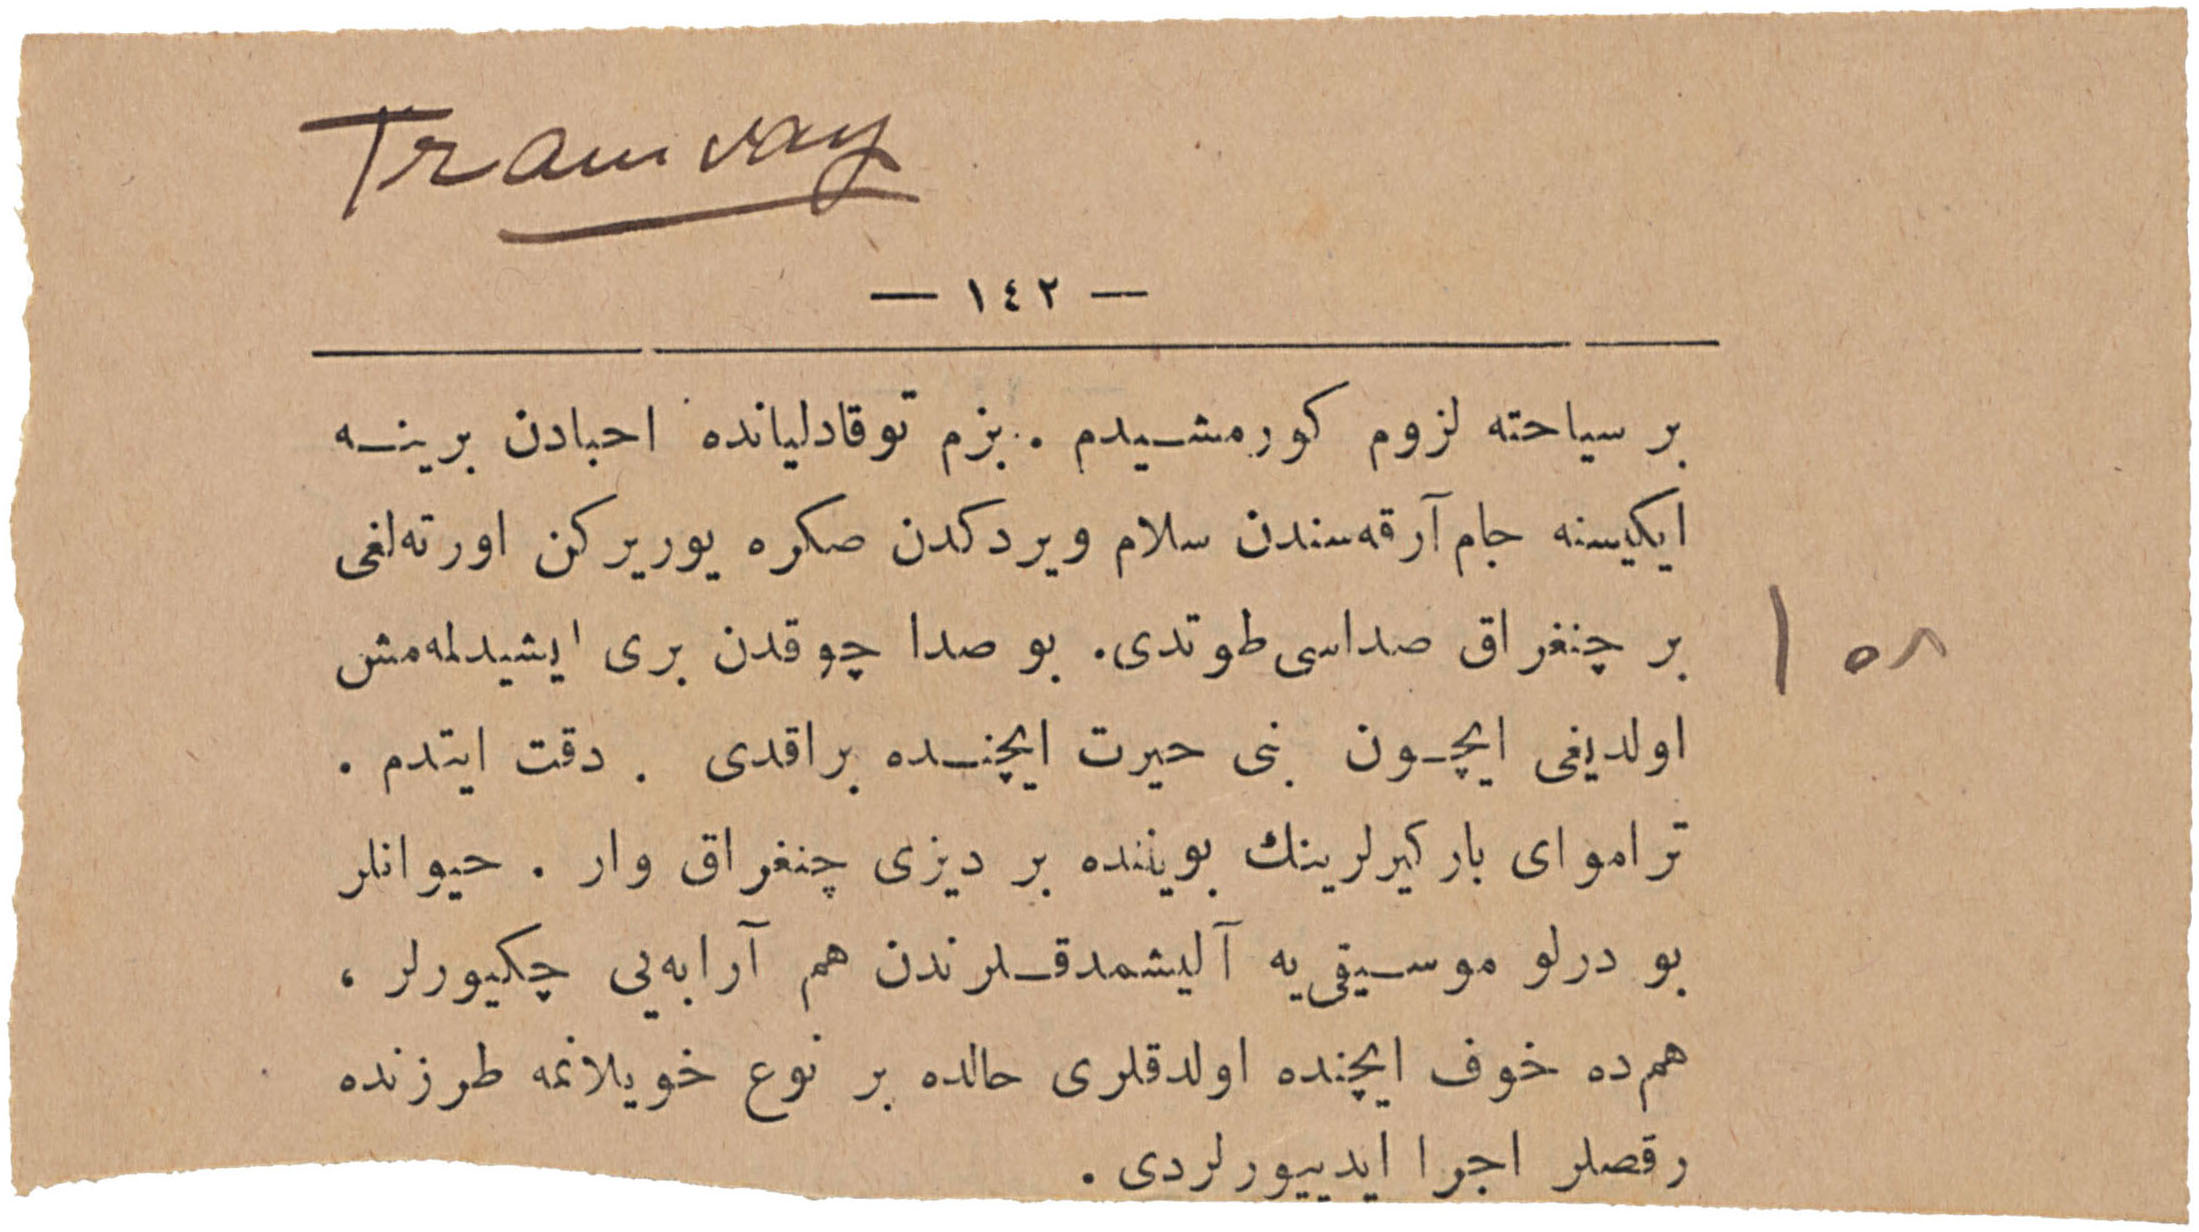 Tramvay
— ١٤٢ —
بر سياحته لزوم كورمشـيدم . بزم توقادليانده احبادن برينـه
ايكيسنه جام آرقه‌سندن سلام ويردكدن صكره يوريركن اورته‌لغى
بر چنغراق صداسى طوتدى. بو صدا چوقدن برى ايشيدلمه‌مش
٥٨
اولديغى ايچـون بنى حيرت ايچنـده براقدى . دقت ايتدم .
تراموای باركيرلرينك بويننده بر ديزى چنغراق وار . حيوانلر
بو درلو موسـيقى‌يه آليشمدقـلرندن هم آرابه‌يى چكيورلر ،
هم‌ده خوف ايچنده اولدقلرى حالده بر نوع خويلانمه طرزنده
رقصلر اجرا ايدييورلردى .